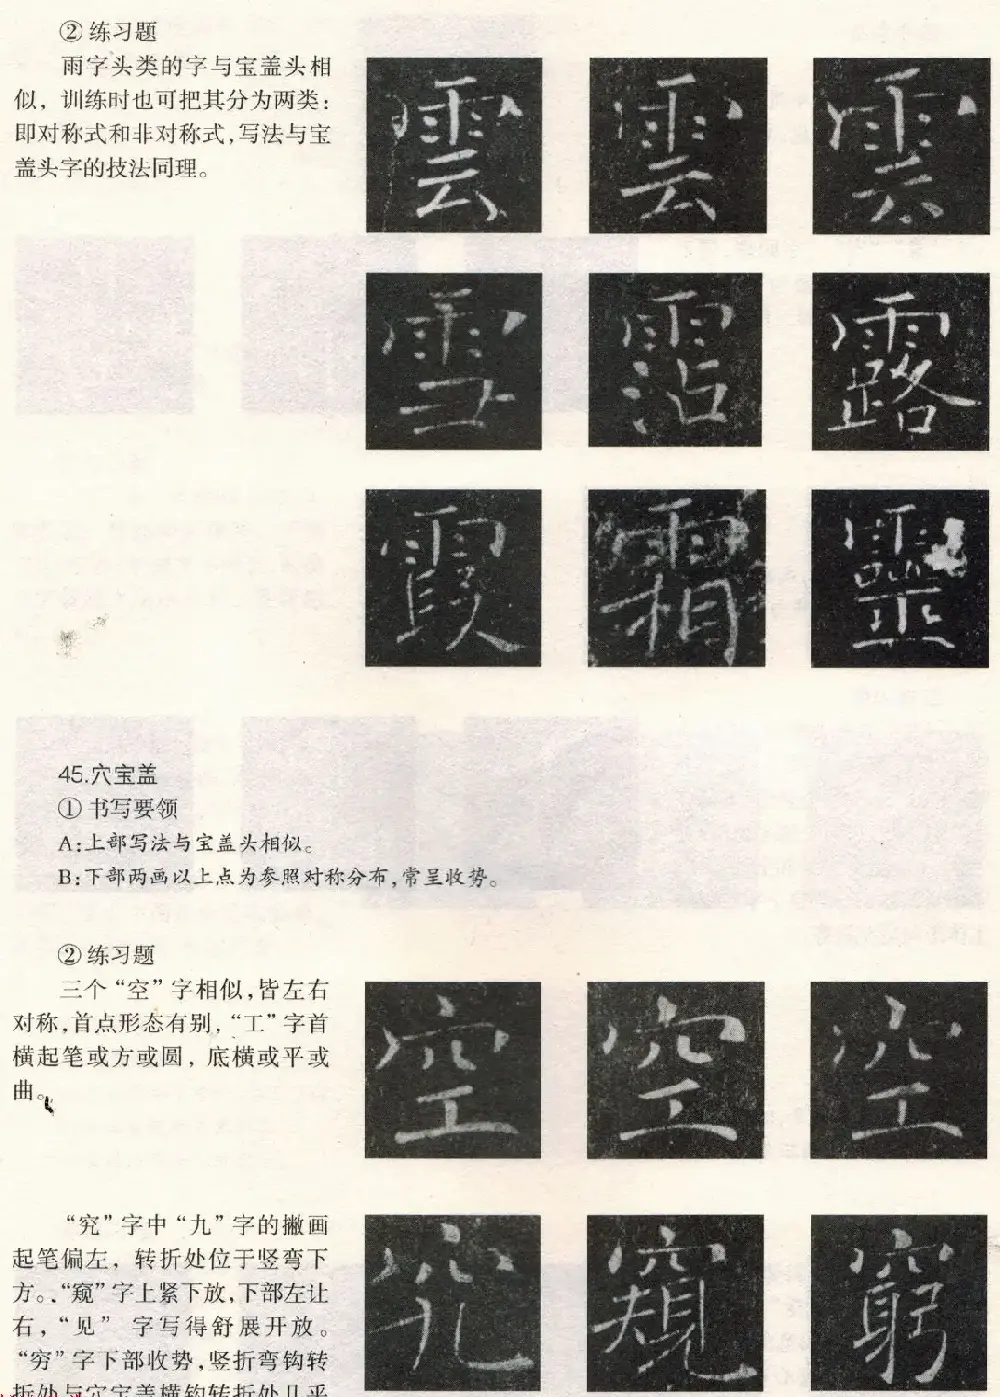 ② 练习题
雨字头类的字与宝盖头相
似，训练时也可把其分为两类：
即对称式和非对称式，写法与宝
盖头字的技法同理。
雲 雲 雲
雪 霑 露
霞 霜 靈
45.穴宝盖
① 书写要领
A：上部写法与宝盖头相似。
B：下部两画以上点为参照对称分布，常呈收势。
② 练习题
三个“空”字相似，皆左右
对称，首点形态有别，“工”字首
横起笔或方或圆，底横或平或
曲。
空 空 空
“究”字中“九”字的撇画
起笔偏左，转折处位于竖弯下
方。“窥”字上紧下放，下部左让
右，“见”字写得舒展开放。
“穷”字下部收势，竖折弯钩转
折处与穴宝盖横钩转折处几乎
究 窺 窮